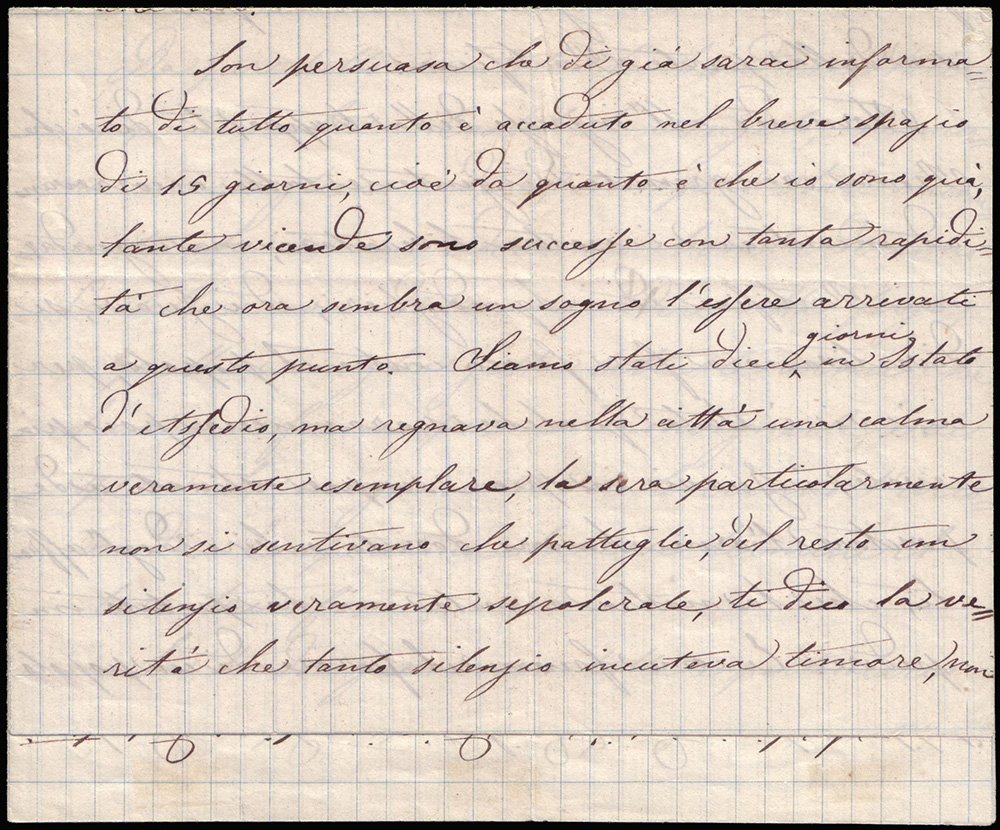 Son persuasa che di già sarai informa=
to di tutto quanto è accaduto nel breve spazio
di 15 giorni, cioè da quanto è che io sono quà,
tante vicende sono successe con tanta rapidi=
tà che ora sembra un sogno l'essere arrivati
a questo punto. Siamo stati dieci giorni in Istato
d'Assedio, ma regnava nella città una calma
veramente esemplare, la sera particolarmente
non si sentivano che pattuglie, del resto un
silenzio veramente sepolcrale, ti dico la ve=
rità che tanto silenzio incuteva timore, non